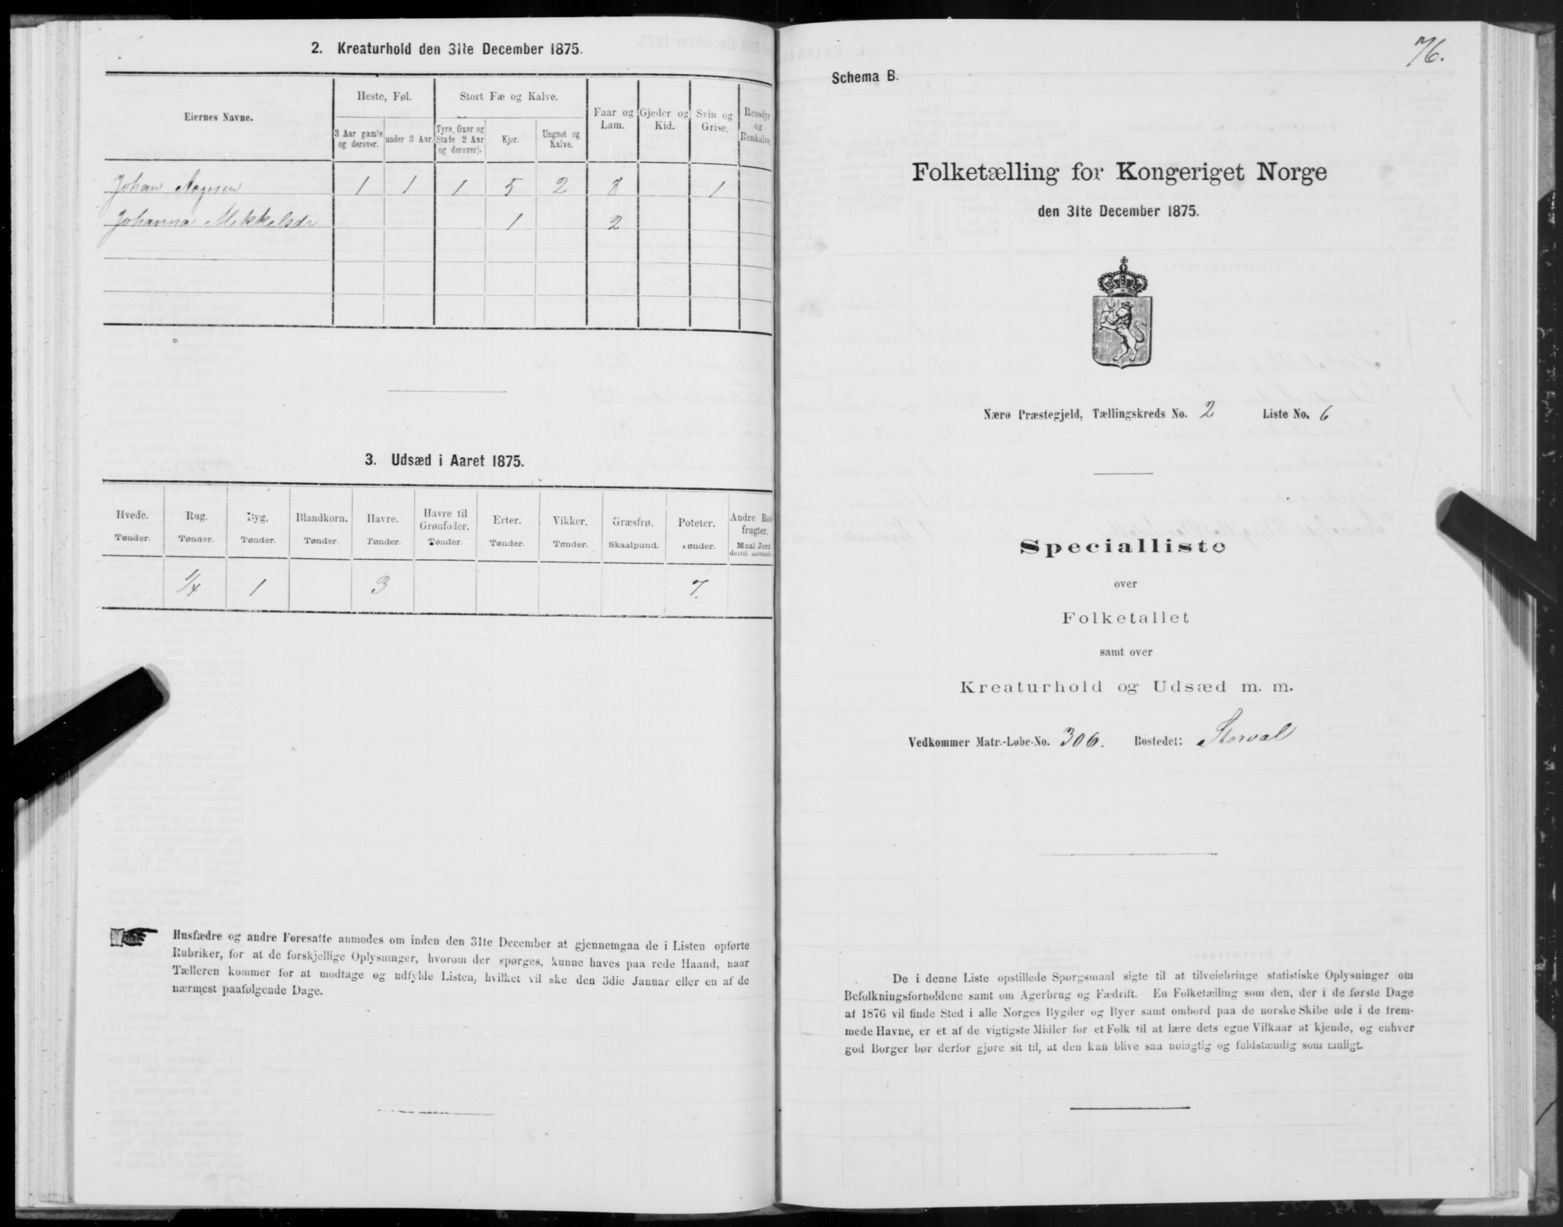 2. Kreaturhold den 31te December 1875.
Eiernes Navne.
Heste, Føl.
Stort Fæ og Kalve.
Faar og Lam.
Gjeder og Kid.
Svin og Grise.
Rensdyr og Renkalve.
3 Aar gamle og derover.
under 3 Aar.
Tyre, Oxer og Stude 2 Aar og derover).
Kjør.
Ungnøt og Kalve.
Johan Aagesen 1 1 1 5 2 8 1
Johanna Mikkelsdr 1 2
3. Udsæd i Aaret 1875.
Hvede. Rug. Byg. Blandkorn. Havre. Havre til Grønfoder. Erter. Vikker. Græsfrø. Poteter. Andre Rodfrugter.
Tønder. Tønder. Tønder. Tønder. Tønder. Tønder. Tønder. Tønder. Skaalpund. Tønder. Maal Jord dertil anvendt.
1/4 1 3 7.
Husfædre og andre Foresatte anmodes om inden den 31te December at gjennemgaa de i Listen opførte
Rubriker, for at de forskjellige Oplysninger, hvorom der spørges, kunne haves paa rede Haand, naar
Tælleren kommer for at modtage og udfylde Listen, hvilket vil ske den 3die Januar eller en af de
nærmest paafølgende Dage.
76.
Schema B.
Folketælling for Kongeriget Norge
den 31te December 1875.
Nærø Præstegjeld, Tællingskreds No. 2 Liste No. 6
Specialliste
over
Folketallet
samt over
Kreaturhold og Udsæd m. m.
Vedkommer Matr.-Løbe-No. 306. Bostedet: Storval
De i denne Liste opstillede Spørgsmaal sigte til at tilveiebringe statistiske Oplysninger om
Befolkningsforholdene samt om Agerbrug og Fædrift. En Folketælling som den, der i de første Dage
af 1876 vil finde Sted i alle Norges Bygder og Byer samt ombord paa de norske Skibe ude i de frem-
mede Havne, er et af de vigtigste Midler for et Folk til at lære dets egne Vilkaar at kjende, og enhver
god Borger bør derfor gjøre sit til, at den kan blive saa nøiagtig og fuldstændig som muligt.